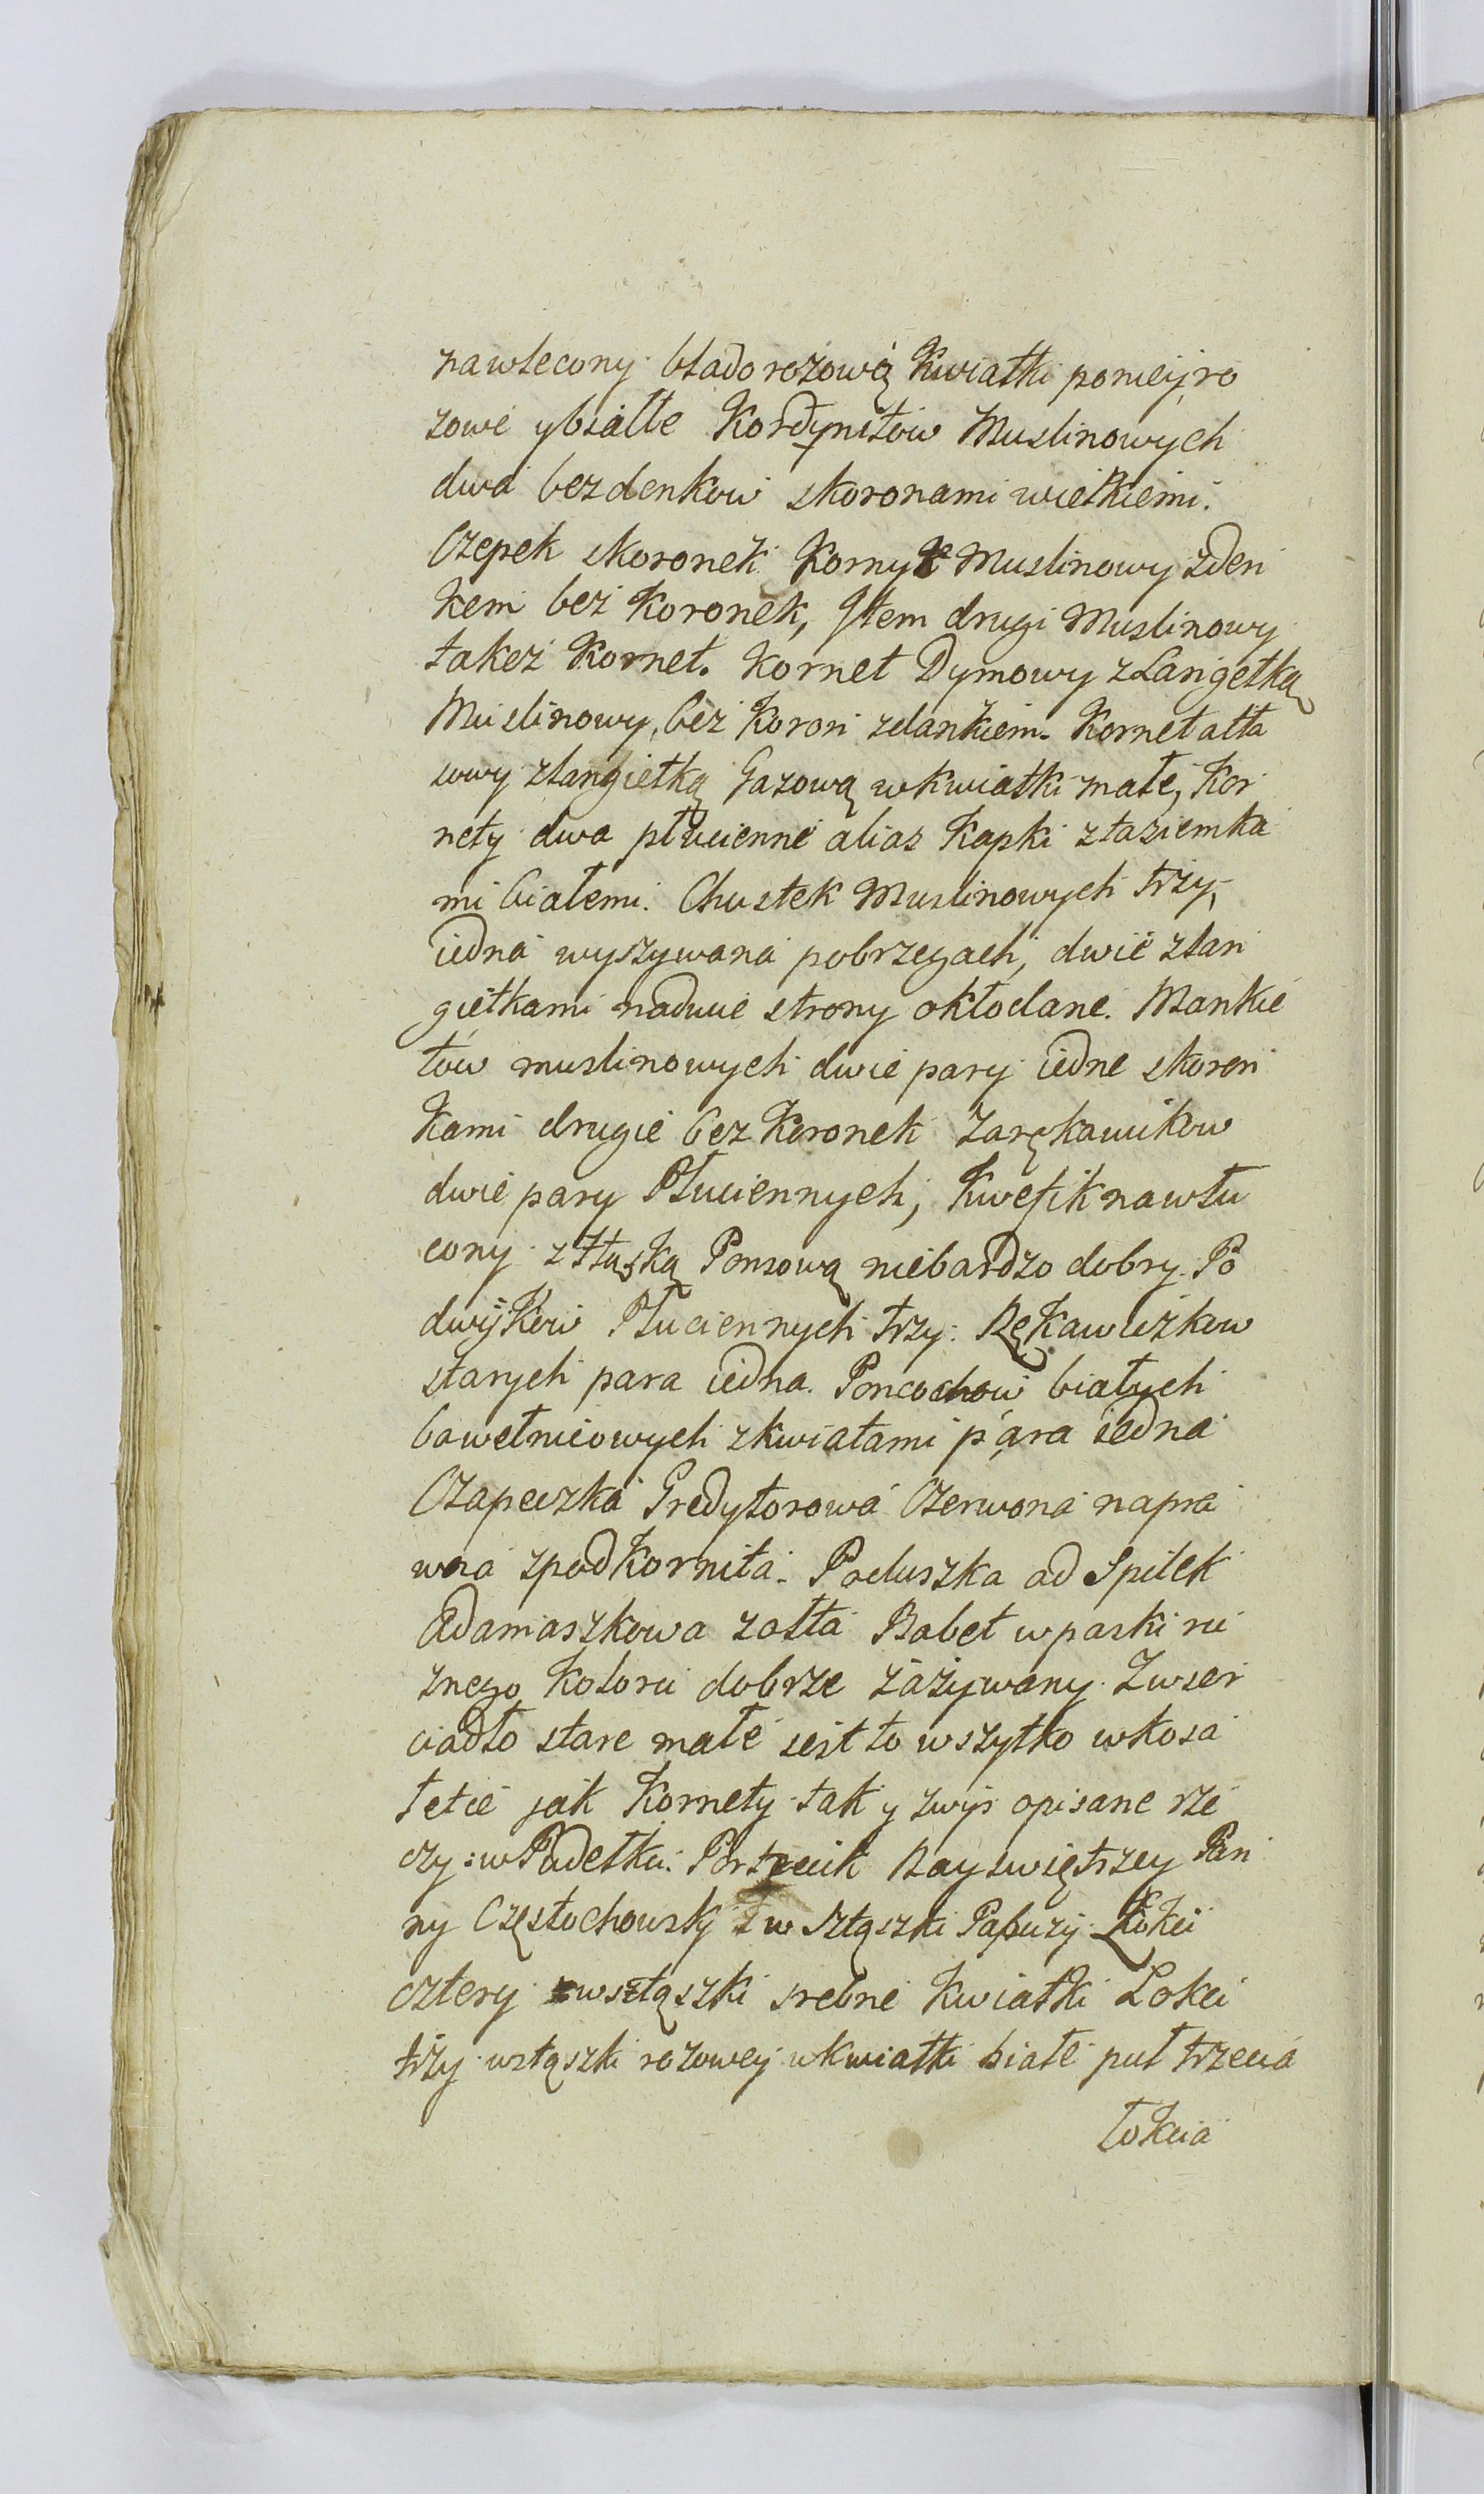 nawlecony bladorożową Kwiatki poniej ro
zowe y białłe Kordynetow Muslinowych
dwa bez denkow skoronami wielkiemi.
Czepek skoronek Kornyt Muslinowy zden
kem bez Koronek, Item drugi Muslinowy
takeż Kornet. Kornet Dymowy z Langetką
Muslinowy, bez Koron zdankiem. Kornet atła
sowy zlangietką Gazową wkwiatki małe, Kor
nety dwa płucienne alias Kapki ztasiemka
mi białemi. Chustek Muslinowych trzy,
iedna wyszywana pobrzegach, dwie zlan
gietkami nadwie strony okłodane. Mankie
tow muslinowych dwie pary iedne skoron
kami drugie bez Koronek Zarękawikow
dwie pary Płuciennych, Kwefik nawłu
cony Ponsową niebardzo dobry. Po
dwijkow Płuciennych trzy. Rękawiczkow
starych para iedna. Poncochow białych
bawełnicowych zkwiatami para iedna
Czapeczka Gredytorowa Czerwona napra
wna zpod Korneta. Poduszka od Spilek
Adamaszkowa zołta Babet wpaski ru
znego Koloru dobrze zażywany. Zwier
ciadło stare małe iest to wszytko wkosa
tetie jak Kornety tak y zwyż opisane rze
czy: w Pudełku: Portrecik Nayswiętrzey Pan
ny Częstochowsky wsztąszki Papuzy Łokci
cztery wsztąszki srebne kwiatki Lokci
trzy wstąszki rozowey wkwiatki białe puł trzecia
łokcia